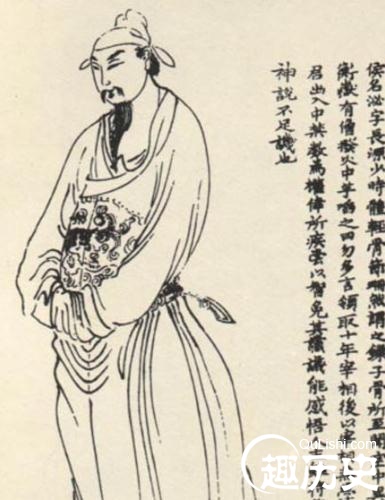 侯名泌字長源少時體輕骨節珊珊然謂之鎖子骨所至
衡嶽有僧撥火中芋啗之曰勿多言領取十年宰相後以
君出入中禁數為權倖所疾常以智免其讜議能感悟
神說不足譏也
QuLishi.com
趣历史